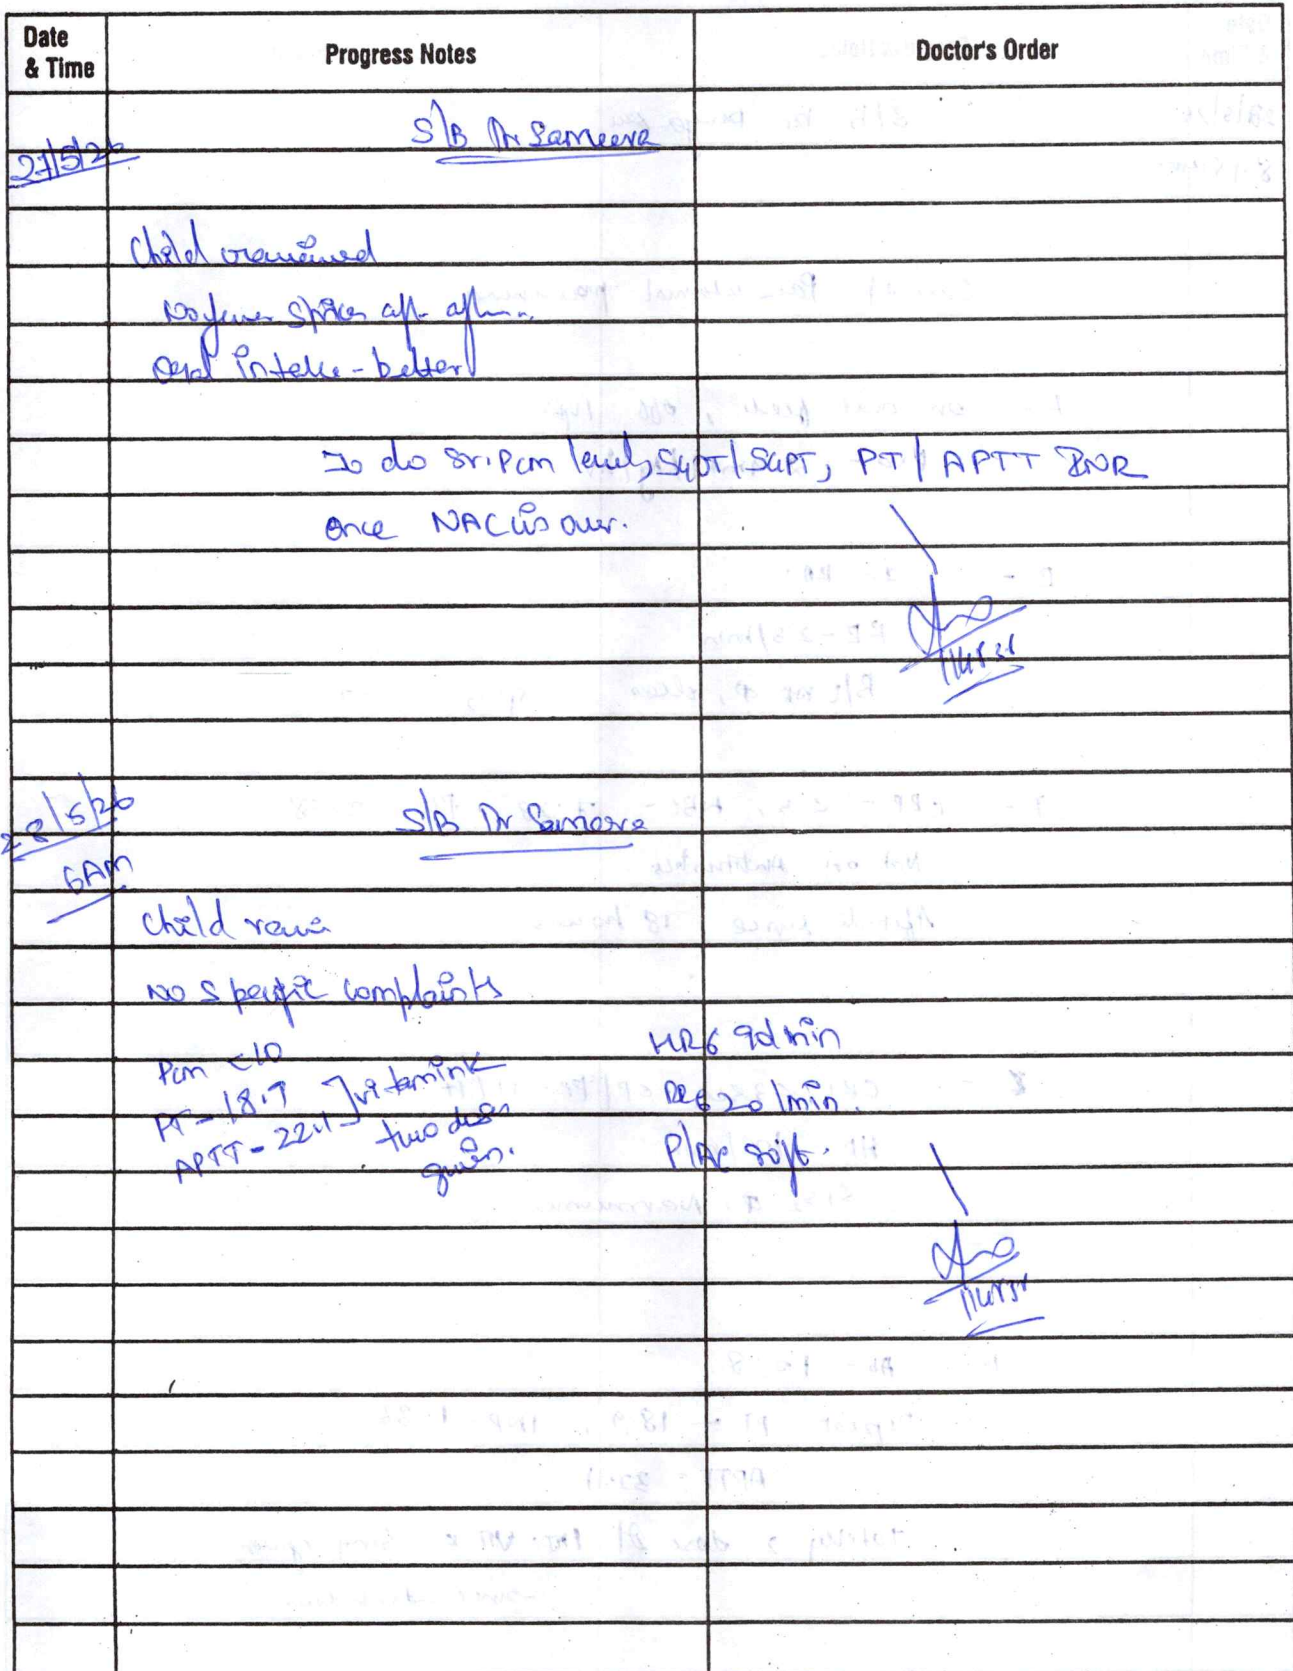 Date & Time
Progress Notes
Doctor's Order
27/5/26
S/B Dr Sameera
Child reviewed
No fever spikes aft
Oral intake - better
To do Sr. Pcm level, SGOT/SGPT, PT/APTT INR
once NAC is over.
28/5/26
6AM
S/B Dr Sameera
Child
No specific complaints
Pcm <10
PT - 18.9
APTT - 22.1
] vitamin K
two doses
given.
HR 92/min
RR 20/min.
P/A soft.